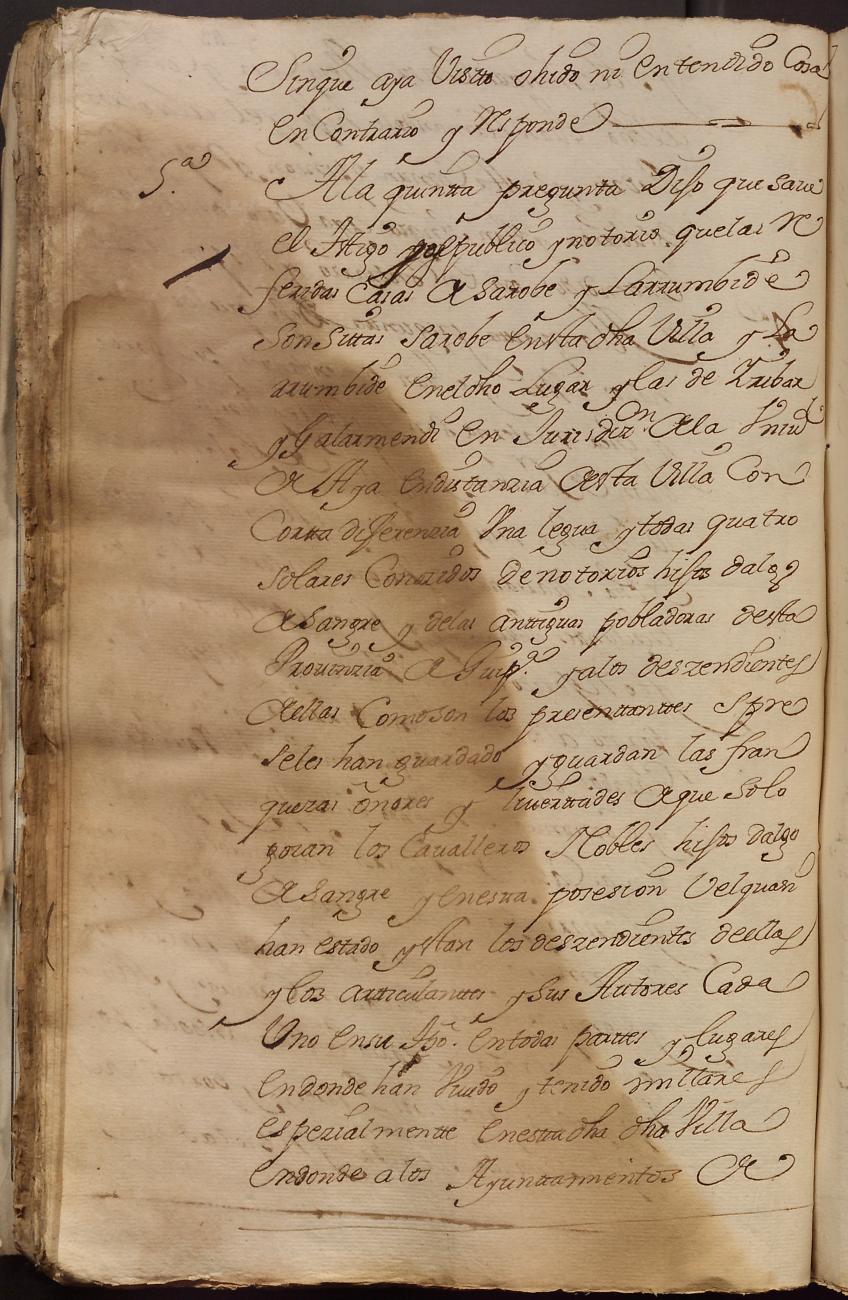 Sinque aya Visto ohido ni entendido Cosa
en Contrario y Responde
5.ª
Ala quintta pregunta Dijo que save
el ttigo y es publico y notorio quelas Re
feridas Casas de Sarobe y Larrumbide
Son Sittas Sarobe en esta dha Villa y La
rrumbide en el dho Lugar y las de Yribar
y Galarmendi en Jurisdizon de la Univd
de Aya en distanzia de esta Villa Con
Cortta diferenzia Una legua y todas quatro
solares Conozidos de notorios hijos dalgo
de Sangre y delas anttiguas pobladoras desta
Provinzia de Guipª. y alos deszendientes
de ellas Como son los presenttanttes Spre
seles han guardado y guardan las fran
quezas onores y livertades de que Solo
gozan los Cavalleros Nobles hijos dalgo
de Sangre y en esta posesion Velquasi
han estado y estan los deszendientes de ellas
y los articulantes y Sus Autores Cada
Uno en su tpo. en todas parttes y lugares
en donde han Vivido y tenido millares
espezialmentte en esta dha dha Villa
en donde a los Ayunttamienttos de